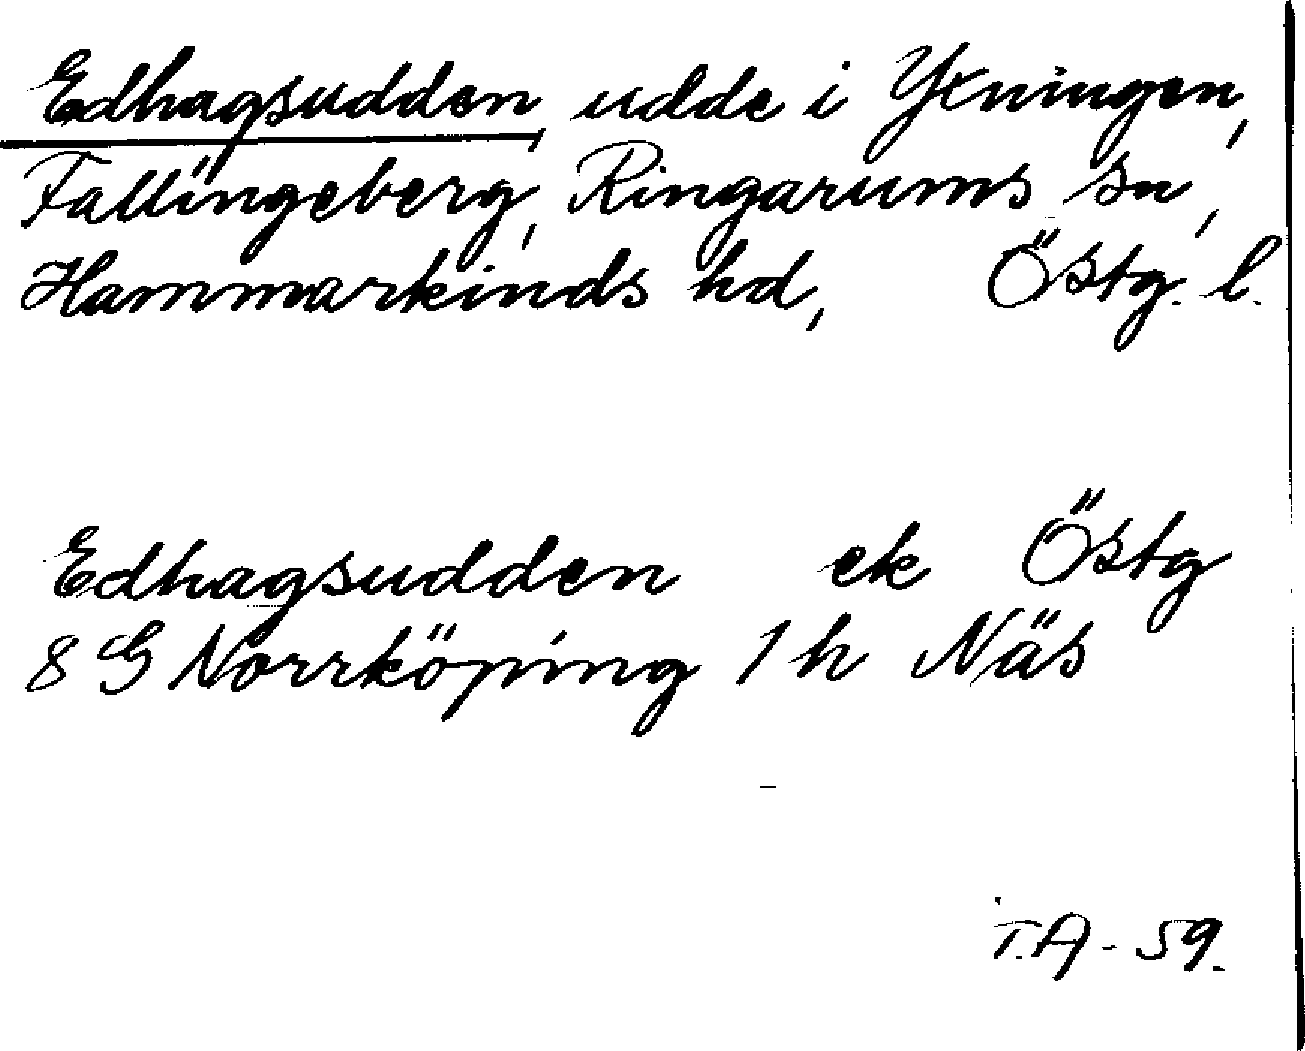 Edhagsudden, udde i Yxningen,
Fallingeberg, Ringarums sn,
Hammarkinds hd, Östg. l.
Edhagsudden ek Östg
8 G Norrköping 1 h Näs
T.A - 59.